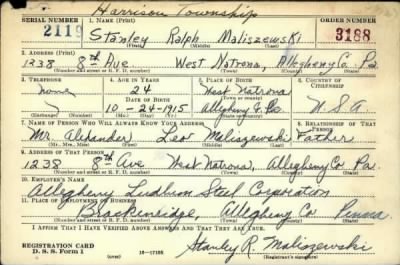 Harrison Township
SERIAL NUMBER 1. NAME (Print) ORDER NUMBER
2119 Stanley Ralph Maliszewski 3188
(First) (Middle) (Last)
2. ADDRESS (Print)
1238 8th Ave West Natrona, Allegheny Co. Pa.
(Number and street or R. F. D. number) (Town) (County) (State)
3. TELEPHONE 4. AGE IN YEARS 5. PLACE OF BIRTH 6. COUNTRY OF CITIZENSHIP
none 24 West Natrona
DATE OF BIRTH
10-24-1915 Allegheny Co Pa. U.S.A.
(Exchange) (Number) (Mo.) (Day) (Yr.) (State or country)
7. NAME OF PERSON WHO WILL ALWAYS KNOW YOUR ADDRESS 8. RELATIONSHIP OF THAT PERSON
Mr. Alexander Leo Maliszewski Father
(Mr., Mrs., Miss) (First) (Middle) (Last)
9. ADDRESS OF THAT PERSON
1238 8th Ave West Natrona, Allegheny Co Pa.
(Number and street or R. F. D. number) (Town) (County) (State)
10. EMPLOYER'S NAME
Allegheny Ludlum Steel Corporation
11. PLACE OF EMPLOYMENT OR BUSINESS
Brackenridge, Allegheny Co Penna.
(Number and street or R. F. D. number) (Town) (County) (State)
I AFFIRM THAT I HAVE VERIFIED ABOVE ANSWERS AND THAT THEY ARE TRUE.
REGISTRATION CARD
D. S. S. Form 1 (over) 16-17105 Stanley R. Maliszewski
(Registrant's signature)